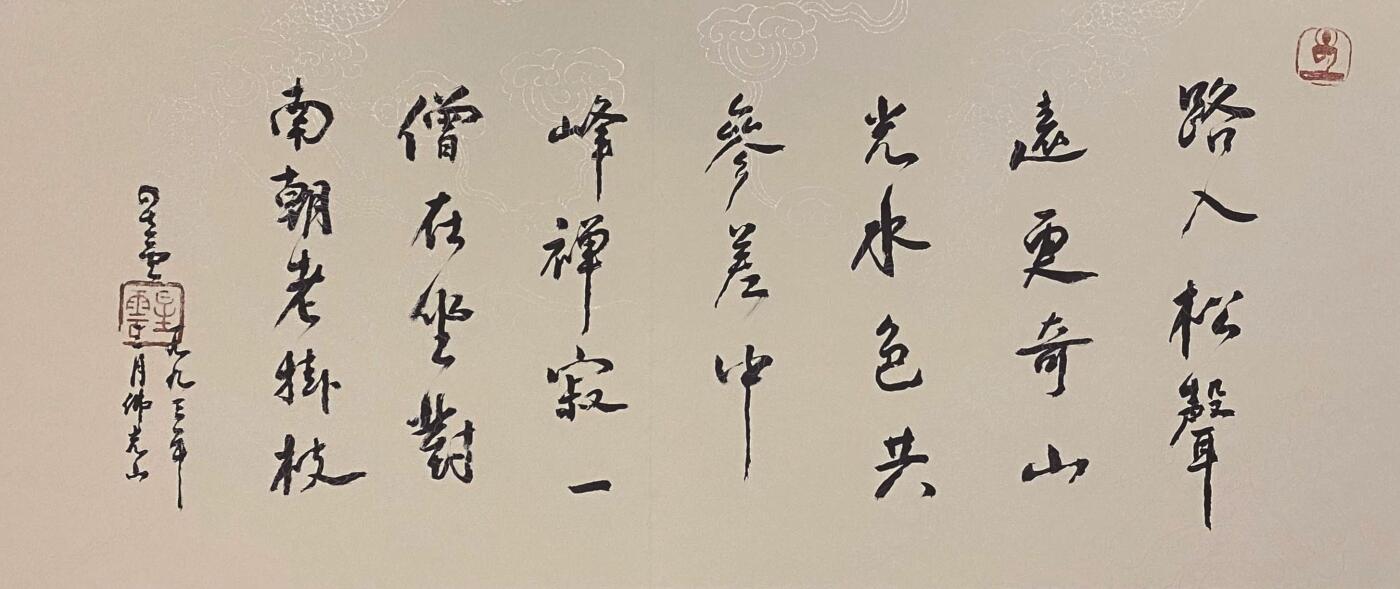 路入松聲
遠更奇山
光水色共
參差中
峰禪寂一
僧在坐對
南朝老掛枝
星雲
星雲
九九三年
月佛光山